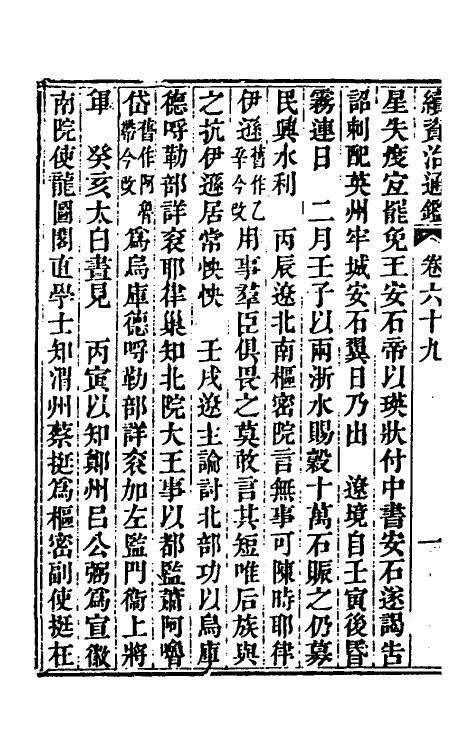 續資治通鑑 卷六十九 一
星失度宜罷免王安石帝以瑛狀付中書安石遂謁告
詔刺配英州牢城安石翼日乃出 遼境自壬寅後昏
霧連日 二月壬子以兩浙水賜穀十萬石賑之仍募
民興水利 丙辰遼北南樞密院言無事可陳時耶律
伊遜舊作乙辛今改用事羣臣俱畏之莫敢言其短唯后族與
之抗伊遜居常怏怏 壬戌遼主論討北部功以烏庫
德哷勒部詳衮耶律巢知北院大王事以都監蕭阿嚕
岱舊作阿魯帶今改爲烏庫德哷勒部詳衮加左監門衞上將
軍 癸亥太白晝見 丙寅以知鄭州呂公弼爲宣徽
南院使龍圖閣直學士知渭州蔡挺爲樞密副使挺在